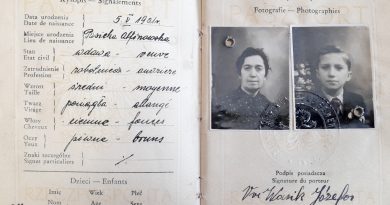 Rysopis - Signalements
Data urodzenia
Date de naissance
5. V 1901r.
Miejsce urodzenia
Lieu de naissance
Stan
Etat civil
wdowa - veuve
Zatrudnienie
Profession
robotnica - ouvrière
Wzrost
Taille
średni - moyenne
Twarz
Visage
pociągła - allongé
Włosy
Cheveux
ciemne - foncés
Oczy
Yeux
piwne - bruns
Znaki szczególne
Signes particuliers
%
Dzieci - Enfants
Imię Wiek Płeć
Nom Age Sexe
Fotografie - Photographies
Podpis posiadacza
Signature du porteur
Józefa